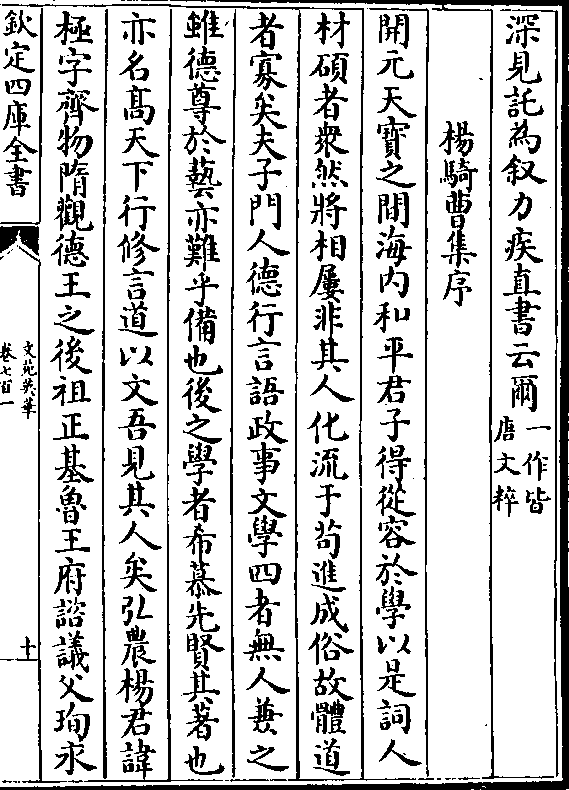 深見託為叙力疾直書云爾一作皆唐文粹
楊騎曹集序
開元天寶之間海内和平君子得從容於學以是詞人
材碩者衆然將相屢非其人化流于苟進成俗故體道
者寡矣夫子門人德行言語政事文學四者無人兼之
雖德尊於藝亦難乎備也後之學者希慕先賢其著也
亦名髙天下行修言道以文吾見其人矣弘農楊君諱
極字齊物隋觀德王之後祖正基魯王府諮議父珣求
欽定四庫全書
文苑英華
卷七百一
十